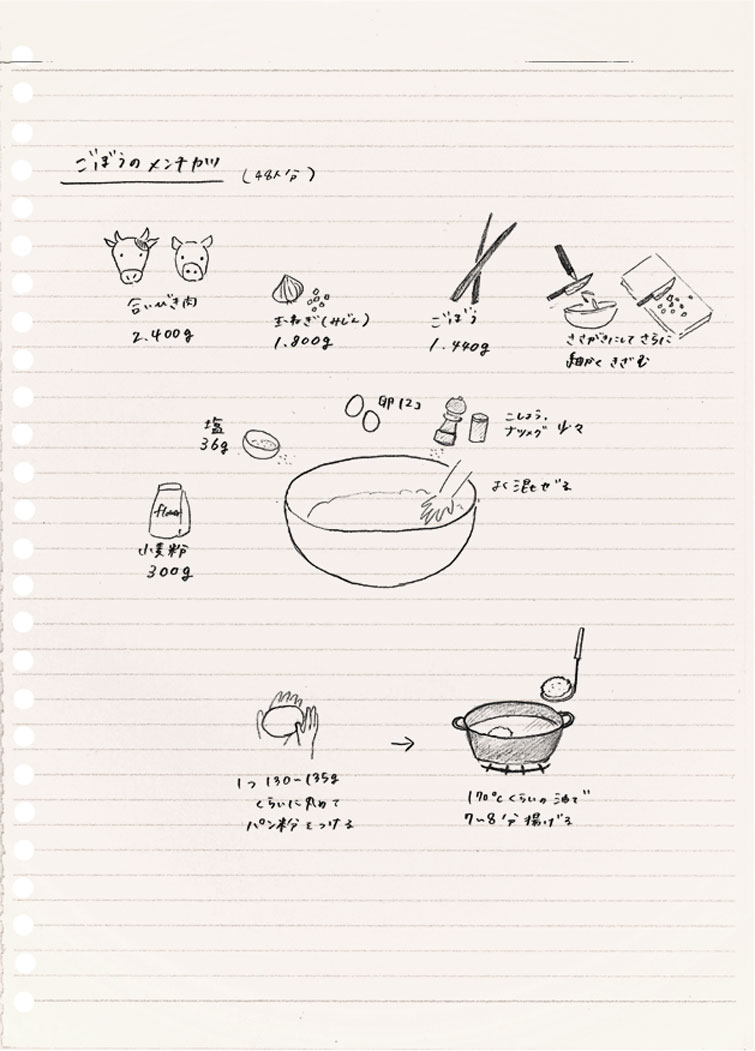 ごぼうのメンチカツ (48人分)
合いびき肉
2.400g
玉ねぎ(みじん)
1.800g
ごぼう
1.440g
ささがきにしてさらに
細かくきざむ
塩
36g
卵12コ
こしょう、
ナツメグ 少々
よく混ぜる
flour
小麦粉
300g
1つ 130-135g
くらいに丸めて
パン粉をつける
170℃くらいの油で
7~8分揚げる